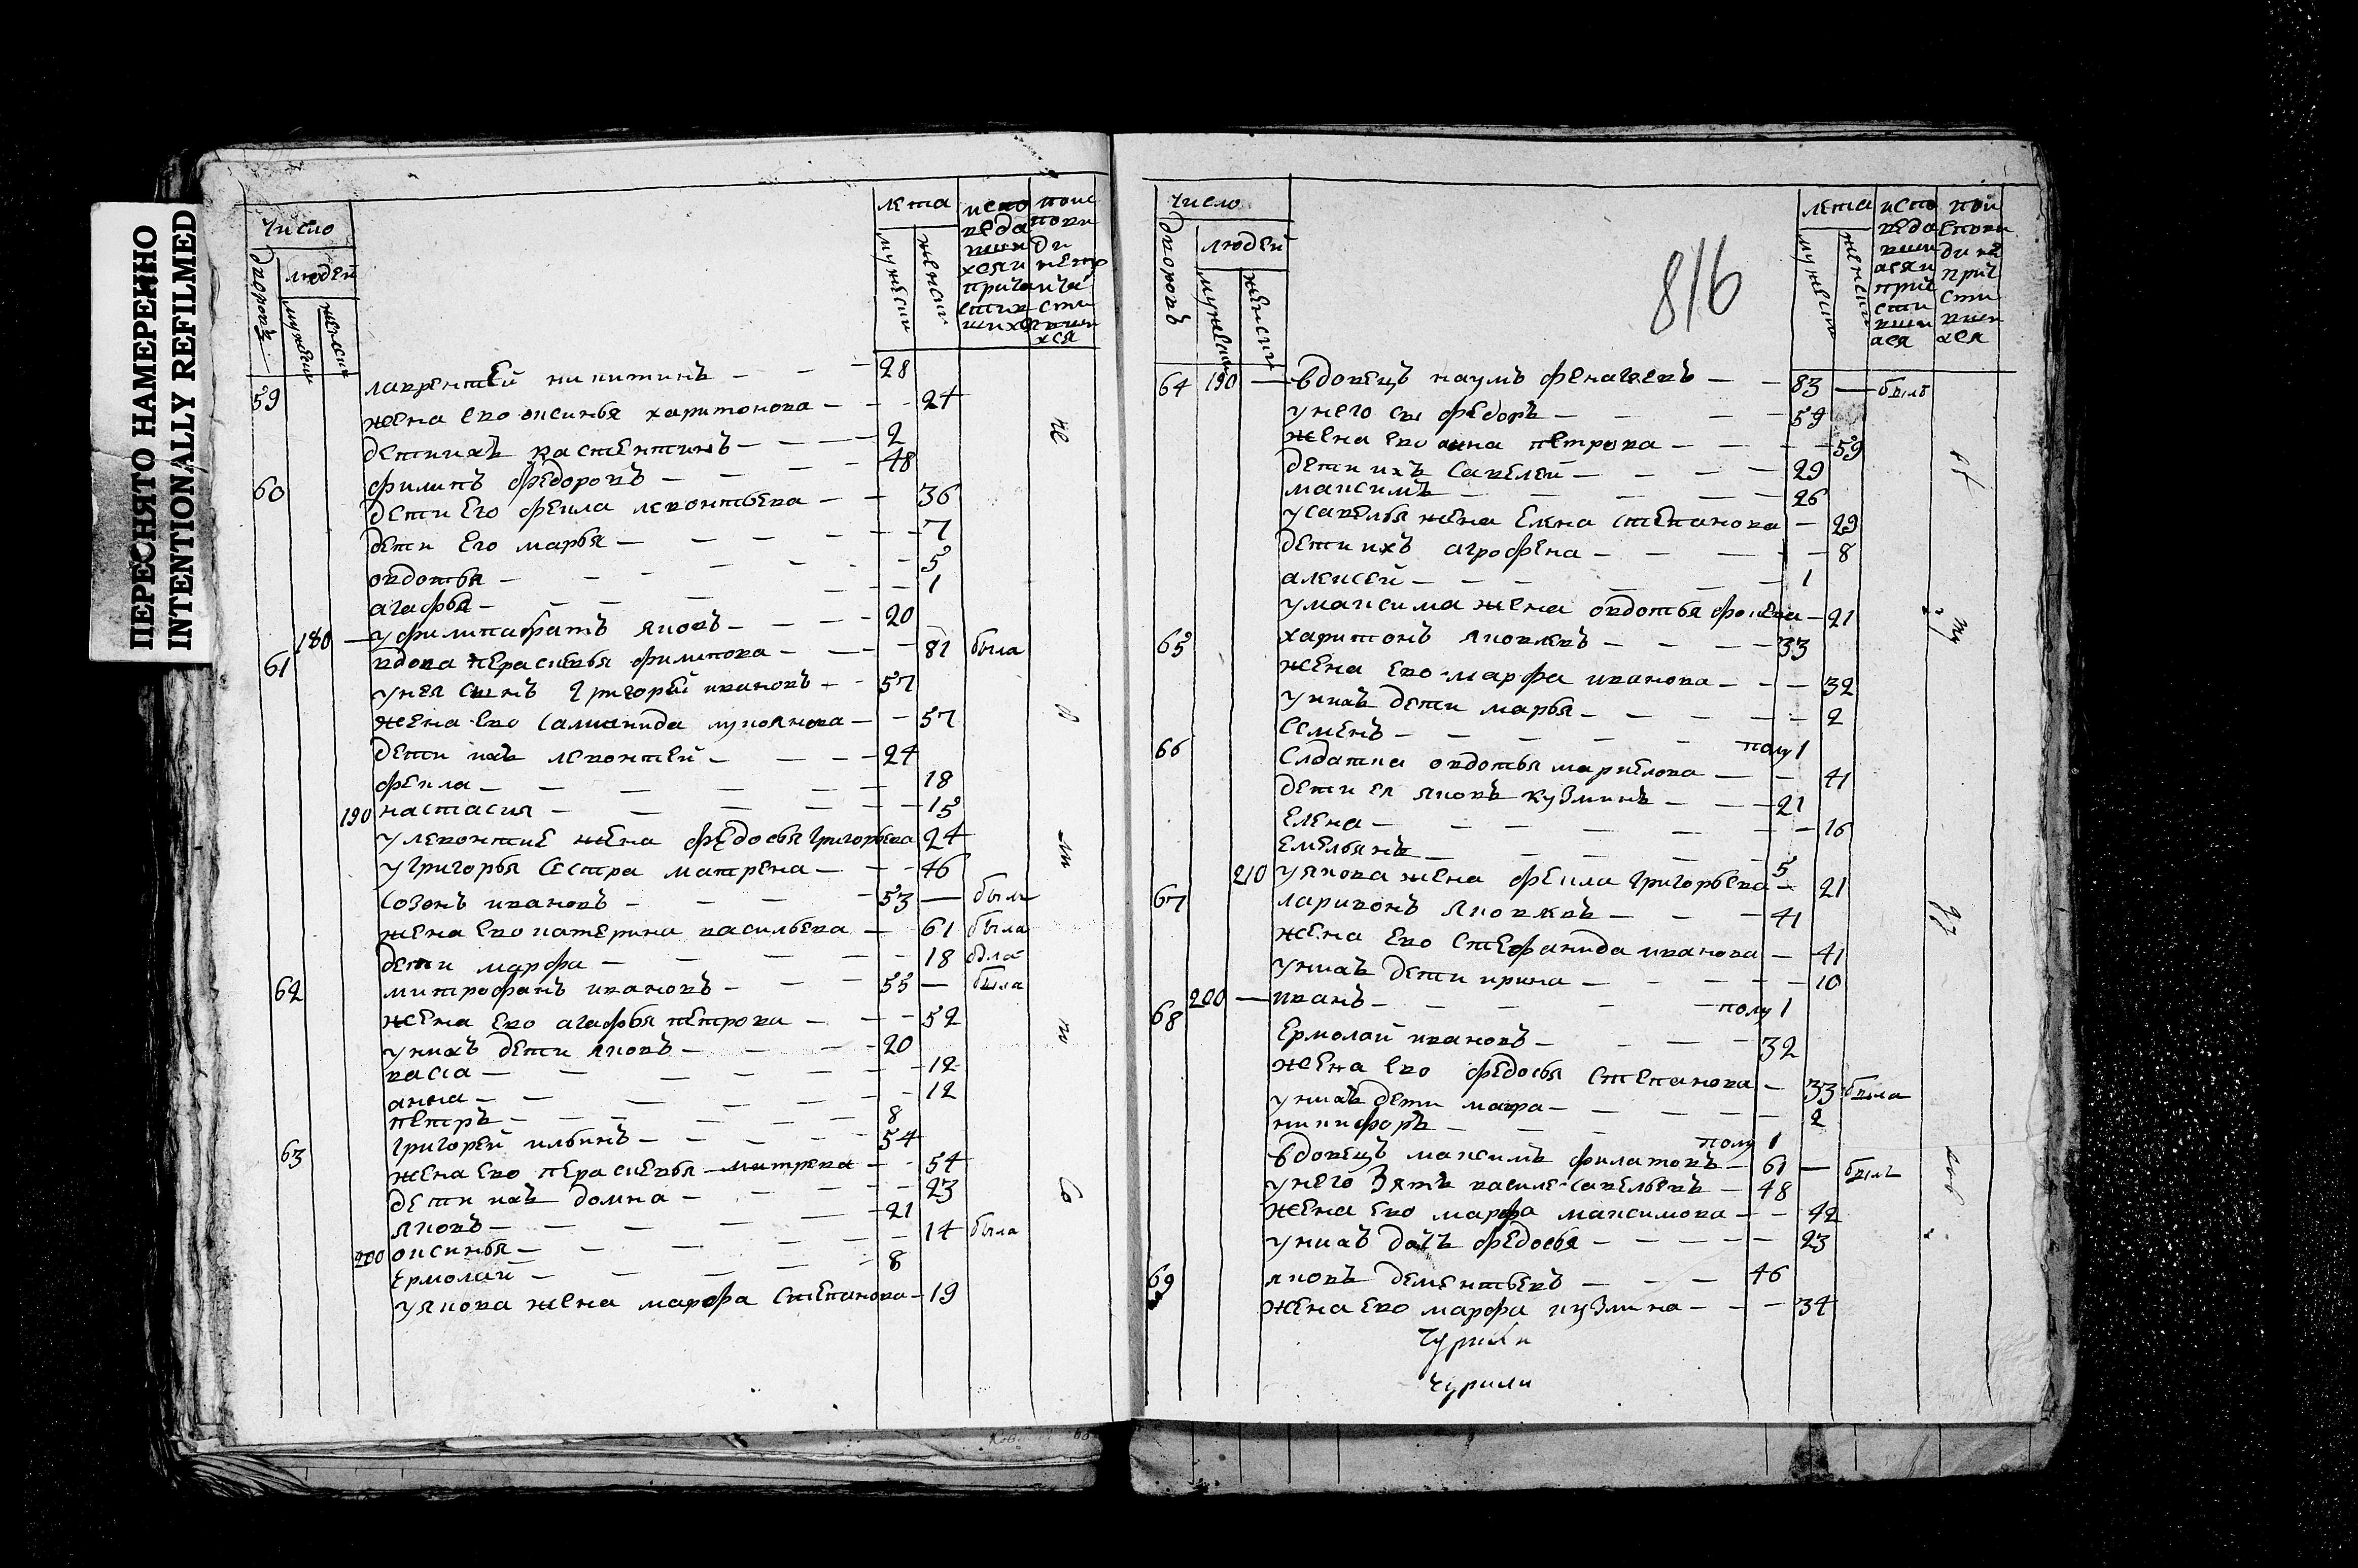 ПЕРЕСНЯТО НАМЕРЕННО
INTENTIONALLY REFILMED
число
дворовъ
людей
мужеска
женска
лета
мужеска
женска
59 лаврентей никитинъ — — — 28
жена ево оксинья харитонова — — — 24
дети ихъ костентинъ — — — — 2
60 филипъ федоровъ — — — 48
дети его фекла леконтьева — — 36
дети Его марья — — — — — 7
овдотья — — — — — 5
агафья — — — — — 1
180 — у филипа братъ яковъ — — — — 20
61 вдова перасковья филипова — — — 81 была
у нея сынъ григорей ивановъ — — 57
жена ево саломанида лукоянова — — 57
дети ихъ левонтей — — — 24
фекла — — — — — — 18
190 настасия — — — — — 15
у левонтие жена федосья григорьева 24
у григорья сестра матрена — — — 46
созонъ ивановъ — — — — 53 — былъ
жена ево катерина васильева — 61 была
дети марфа — — — — — 18 была
62 митрофанъ ивановъ — — — 55 — была
жена ево агафья петрова — — — 52
у нихъ дети яковъ — — — — 20
васса — — — — — — 12
анна — — — — — — 12
петръ — — — — — — 8
63 григорей ильинъ — — — — — 54
жена ево перасковья — митрева — — 54
дети ихъ домна — — — — — 23
яковъ — — — — — 21
200 оксинья — — — — — 14 была
ермолай — — — — — 8
у якова жена марфа степанова — 19
816
число
дворовъ
людей
мужеска
женска
лета
мужеска
женска
64 190 — вдовецъ наумъ — — 83 — былъ
у него сы федоръ — — — 59
жена ево анна петрова — — — — 59
дети ихъ савелей — — — — 29
максимъ — — — — — 26
у савелья жена елена степанова — 29
дети ихъ агрофена — — — — — 8
алексей — — — — — 1
у максима жена овдотья фокеева — 21
65 харитонъ яковлевъ — — — — 33
жена ево марфа иванова — — — 32
у нихъ дети марья — — — — — 2
семенъ — — — — — полу 1
66 солдатка овдотья маркелова — — 41
дети ея яковъ кузминъ — — — 21
елена — — — — — — — 16
емельянъ — — — — — 5
210 у якова жена фекла григорьева — 21
67 ларивонъ яковлевъ — — — 41
жена ево стефанида иванова — 41
у нихъ дети ирина — — — — — 10
200 — иванъ — — — — — полу 1
68 ермолай ивановъ — — — — 32
жена ево федосья степанова — 33 была
у нихъ дети мавра — — — — — 2
никифоръ — — — полу 1
вдовецъ максимъ филатовъ — 61 — былъ
у него зять василе савельевъ — 48
жена ево марфа максимова — — 42
у нихъ дочь федосья — — — — — 23
69 яковъ дементьевъ — — — 46
жена ево марфа кузмина — — — 34